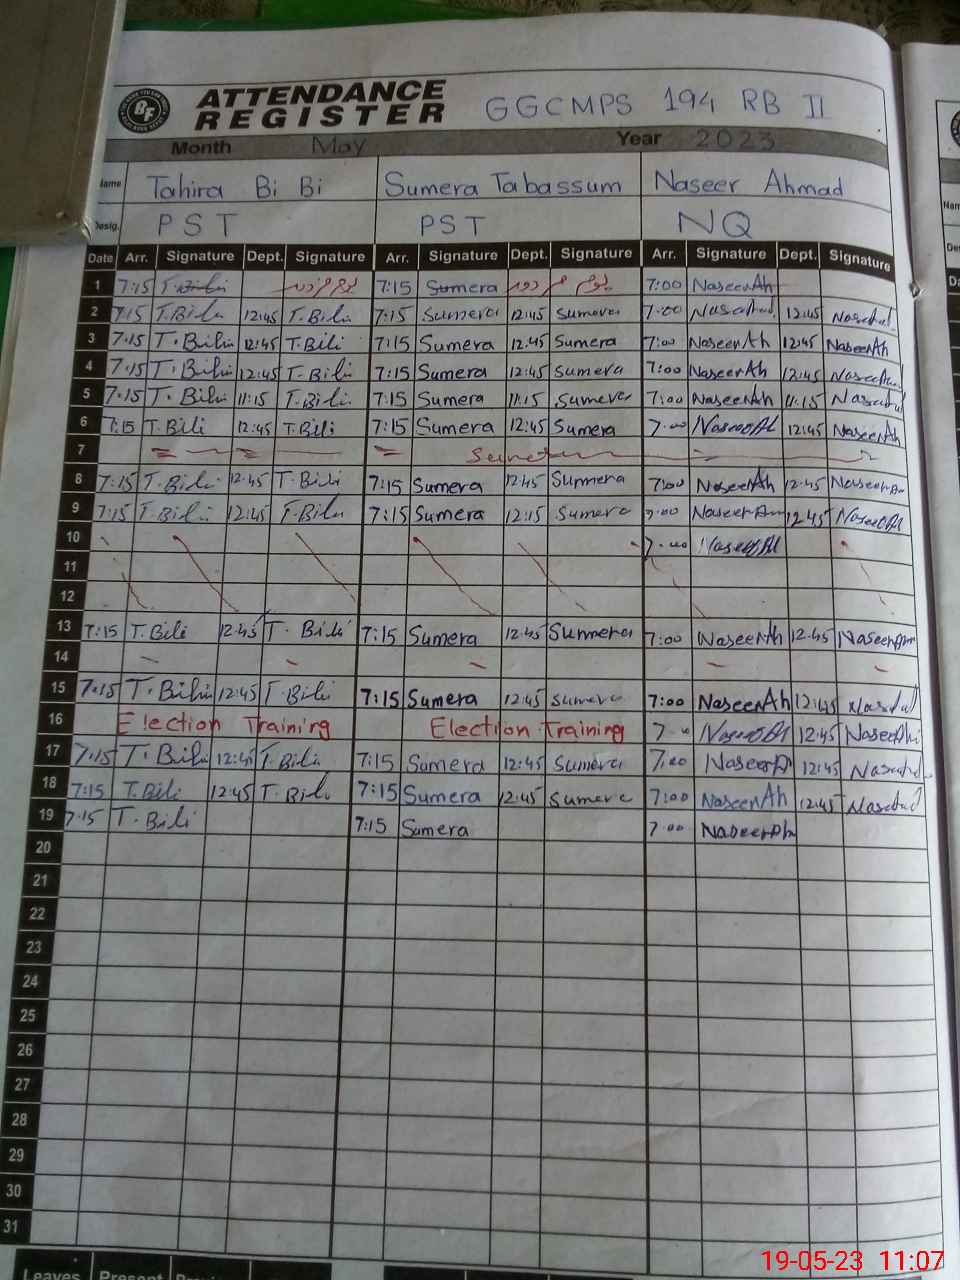 ATTENDANCE REGISTER GGCMPS 194 RB II
Month May Year 2023
Name Tahira Bi Bi Sumera Tabassum Naseer Ahmad
Desig. PST PST NQ
Date Arr. Signature Dept. Signature Arr. Signature Dept. Signature Arr. Signature Dept. Signature
1 7:15 T.Bibi 7:15 Sumera 7:00 NaseerAh
2 7:15 T.Bibi 12:45 T.Bibi 7:15 Sumera 12:45 Sumera 7:00 12:45
3 7:15 T.Bibi 12:45 T.Bibi 7:15 Sumera 12:45 Sumera 7:00 NaseerAh 12:45 NaseerAh
4 7:15 T.Bibi 12:45 T.Bibi 7:15 Sumera 12:45 Sumera 7:00 NaseerAh 12:45
5 7:15 T.Bibi 11:15 T.Bibi 7:15 Sumera 11:15 Sumera 7:00 NaseerAh 11:15
6 7:15 T.Bibi 12:45 T.Bibi 7:15 Sumera 12:45 Sumera 7:00 12:45 NaseerAh
7
8 7:15 T.Bibi 12:45 T.Bibi 7:15 Sumera 12:45 Sumera 7:00 NaseerAh 12:45
9 7:15 T.Bibi 12:45 T.Bibi 7:15 Sumera 12:15 Sumera 7:00 12:45
10 7:00
11
12
13 7:15 T.Bibi 12:45 T.Bibi 7:15 Sumera 12:45 Sumera 7:00 NaseerAh 12:45
14
15 7:15 T.Bibi 12:45 T.Bibi 7:15 Sumera 12:45 Sumera 7:00 NaseerAh 12:45
16 Election Training Election Training 7:00 12:45
17 7:15 T.Bibi 12:45 T.Bibi 7:15 Sumera 12:45 Sumera 7:00 12:45
18 7:15 T.Bibi 12:45 T.Bibi 7:15 Sumera 12:45 Sumera 7:00 NaseerAh 12:45
19 7:15 T.Bibi 7:15 Sumera 7:00
20
21
22
23
24
25
26
27
28
29
30
31
Leaves Present
19-05-23 11:07